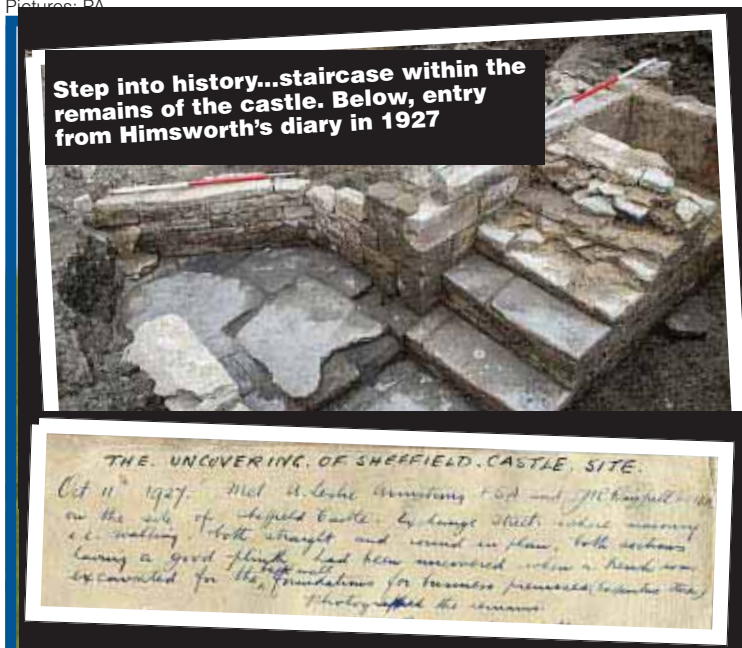 Pictures: PA
Step into history...staircase within the
remains of the castle. Below, entry
from Himsworth's diary in 1927
THE. UNCOVERING. OF SHEFFIELD. CASTLE. SITE.
Oct 11th 1927. Met A. Leslie Armstrong FSA and
on the site of Sheffield Castle. Exchange Street. where masonry
i.e. walling, both straight and round in plan, both sections
having a good plinth had been uncovered when a trench was
excavated for the back wall foundations for business premises
Photographed the remains.